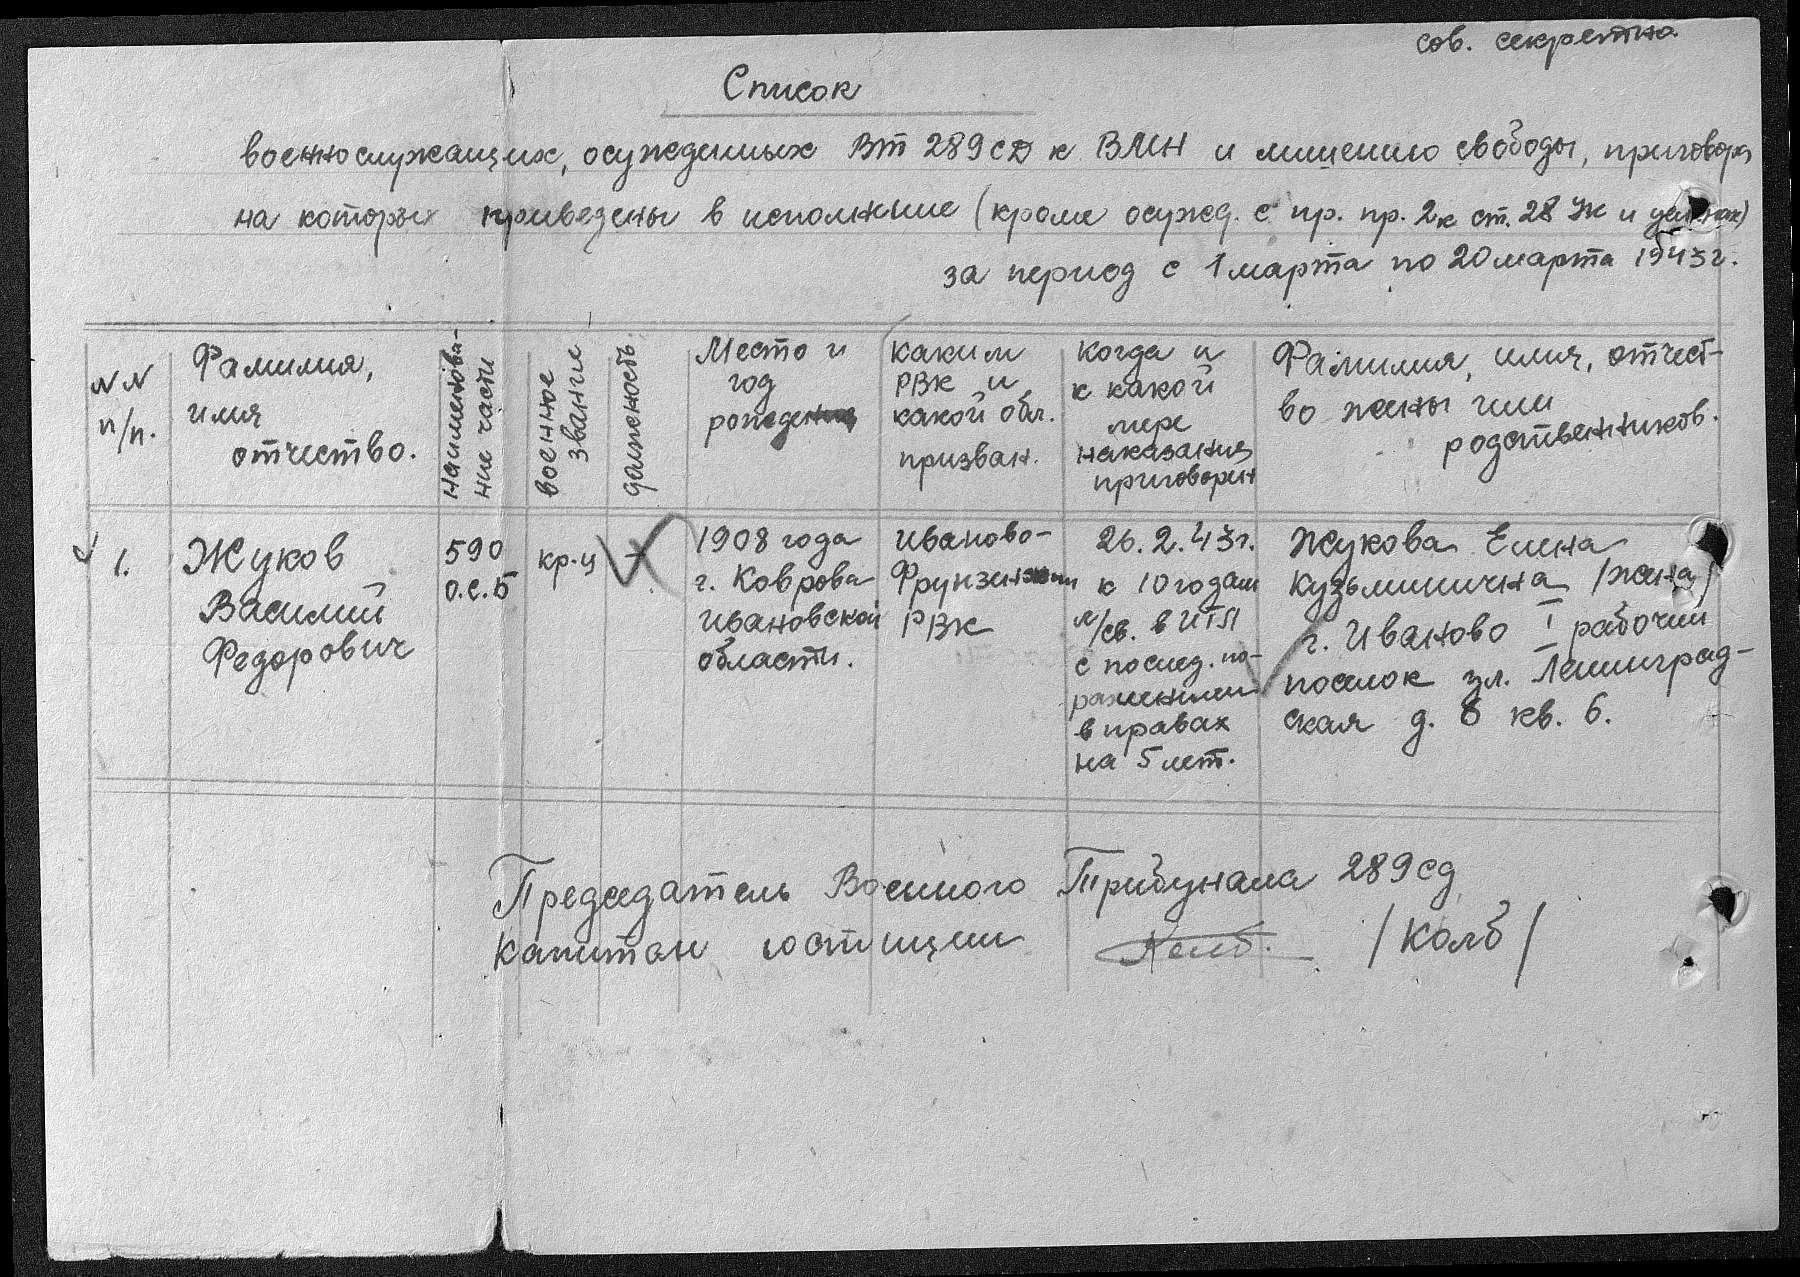 сов. секретно.
Список
военнослужащих, осужденных ВТ 289 сд к ВМН и лишению свободы, приговора
на которых приведены в исполнение (кроме осужд. с пр. пр. 2 к ст. 28 УК и
за период с 1 марта по 20 марта 1943 г.
NN
п/п.
Фамилия,
имя
отчество.
наименова-
ние части
военное
звание
должность
Место и
год
рождения
каким
РВК и
какой обл.
призван.
когда и
к какой
мере
наказания
приговорен
Фамилия, имя, отчест-
во жены или
родственников.
1.
Жуков
Василий
Федорович
590
о.с.б
кр-ц
-
1908 года
г. Коврова
Ивановской
области.
Иваново-
Фрунзенским
РВК
26.2.43 г.
к 10 годам
л/св. в ИТЛ
с послед. по-
ражением
в правах
на 5 лет.
Жукова Елена
Кузьминична /жена/
г. Иваново I рабочий
поселок ул. Ленинград-
ская д. 8 кв. 6.
Председатель Военного Трибунала 289 сд
капитан юстиции Колб. /Колб/